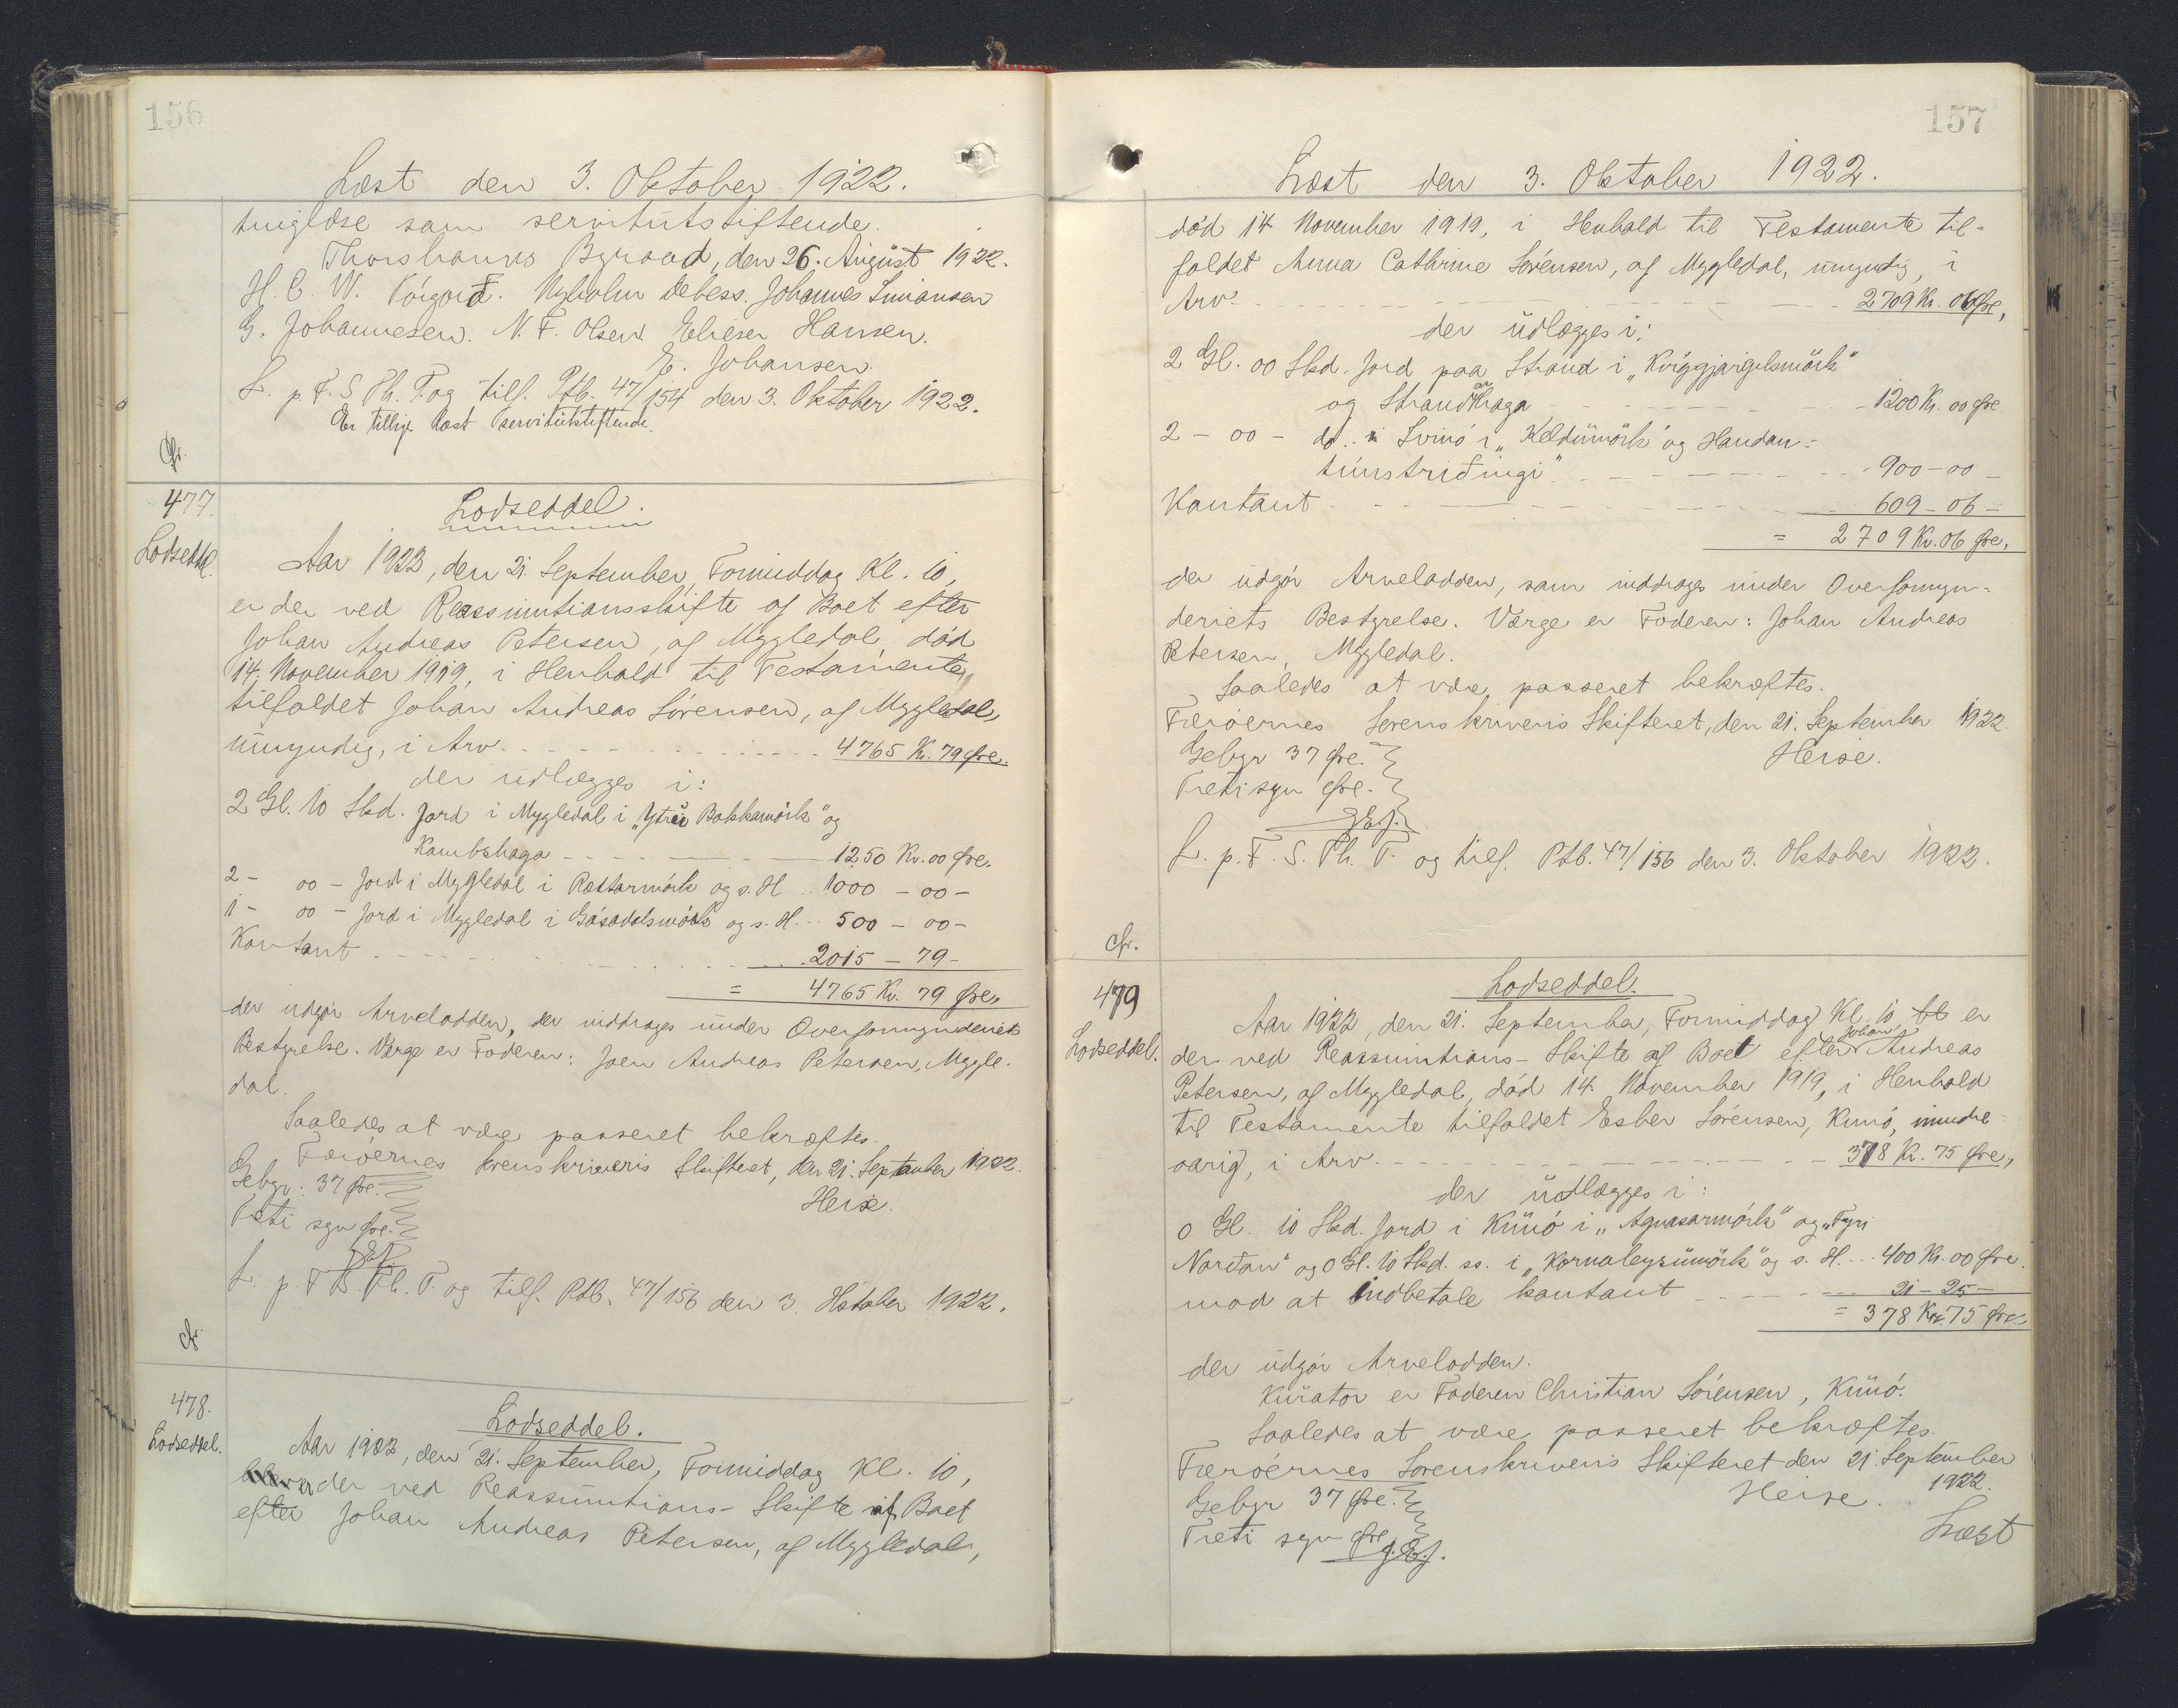 156
Læst den 3. Oktober 1922.
tinglæse som servitutstiftende.
Thorshavns Byraad, den 26. August 1922.
H. C. W. Tórgarð. Nyholm Debess. Johannes Simonsen
G. Johannesen. N. F. Olsen. Elieser Hansen.
E. Johansen.
L. p. F. S. Th. T. og tilf. Ptb. 47/154 den 3. Oktober 1922.
Er tillige læst servitutstiftende.
Cfr.
477.
Lodseddel.
Lodseddel.
Aar 1922, den 21. September, Formiddag Kl. 10,
er der ved Reassumtionsskifte af Boet efter
Johan Andreas Petersen, af Mygledal, död
14. November 1919, i Henhold til Testamente,
tilfaldet Johan Andreas Sörensen, af Mygledal,
umyndig, i Arv 4765 Kr. 79 Øre.
der udlægges i:
2 Gl. 10 Skd. Jord i Mygledal i „Ytru Bakkamörk" og
Kambshaga 1250 Kr. 00 Øre.
2 - 00 - Jord i Mygledal i Rættarmörk og s. H. 1000 - 00 -
1 - 00 - Jord i Mygledal i Gásadalsmörk og s. H. 500 - 00 -
Kontant 2015 - 79 -
= 4765 Kr. 79 Øre,
der udgör Arvelodden, der inddrages under Overformynderiets
Bestyrelse. Værge er Faderen: Joen Andreas Petersen, Mygle-
dal.
Saaledes at være passeret bekræftes.
Færöernes Sorenskriveris Skifteret, den 21. September 1922.
Gebyr: 37 Øre.
Heise.
Treti syv Øre.
J.E.J.
L. p. F. S. Th. T. og tilf. Ptb. 47/156 den 3. Oktober 1922.
cfr.
478.
Lodseddel.
Lodseddel.
Aar 1922, den 21. September, Formiddag Kl. 10,
er der ved Reassumtions-Skifte af Boet
efter Johan Andreas Petersen, af Mygledal,
157
Læst den 3. Oktober 1922.
död 14. November 1919, i Henhold til Testamente til-
faldet Anna Cathrine Sörensen, af Mygledal, umyndig, i
Arv 2709 Kr. 06 Øre,
der udlægges i:
2 Gl. 00 Skd. Jord paa Strand i „Kviggjargilsmörk"
og Strandarhaga 1200 Kr. 00 Øre.
2 - 00 - do. i Svinó i „Keldumörk og Handan-
túnstriðingi" 900 - 00 -
Kontant 609 - 06 -
= 2709 Kr. 06 Øre,
der udgör Arvelodden, som inddrages under Overformyn-
deriets Bestyrelse. Værge er Faderen: Johan Andreas
Petersen, Mygledal.
Saaledes at være passeret bekræftes.
Færöernes Sorenskriveris Skifteret, den 21. September 1922.
Gebyr 37 Øre.
Heise.
Treti syv Øre.
J.E.J.
L. p. F. S. Th. T. og tilf. Ptb. 47/156 den 3. Oktober 1922.
cfr.
479
Lodseddel.
Lodseddel.
Aar 1922, den 21. September, Formiddag Kl. 10 er
der ved Reassumtions-Skifte af Boet efter Johan Andreas
Petersen, af Mygledal, död 14. November 1919, i Henhold
til Testamente tilfaldet Esber Sörensen, Kunö, mindre-
aarig, i Arv 378 Kr. 75 Øre,
der udlægges i:
0 Gl. 10 Skd. Jord i Kunö i „Agnasarmörk" og „Fyri
Norðan" og 0 Gl. 10 Skd. ss. i „Kornaleysumörk" og s. H. 400 Kr. 00 Øre.
mod at indbetale kontant 21 - 25 -
= 378 Kr. 75 Øre.
der udgör Arvelodden.
Kurator er Faderen Christian Sörensen, Kunö.
Saaledes at være passeret bekræftes.
Færöernes Sorenskriveris Skifteret den 21. September
1922.
Gebyr 37 Øre.
Heise.
Treti syv Øre
J.E.J.
Læst